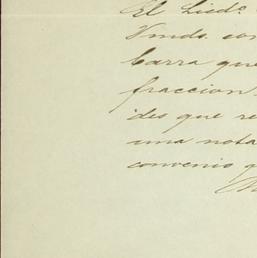 El Licdo.
Vmds. con
barra que
fraccion
ides que re
una nota
convenio q